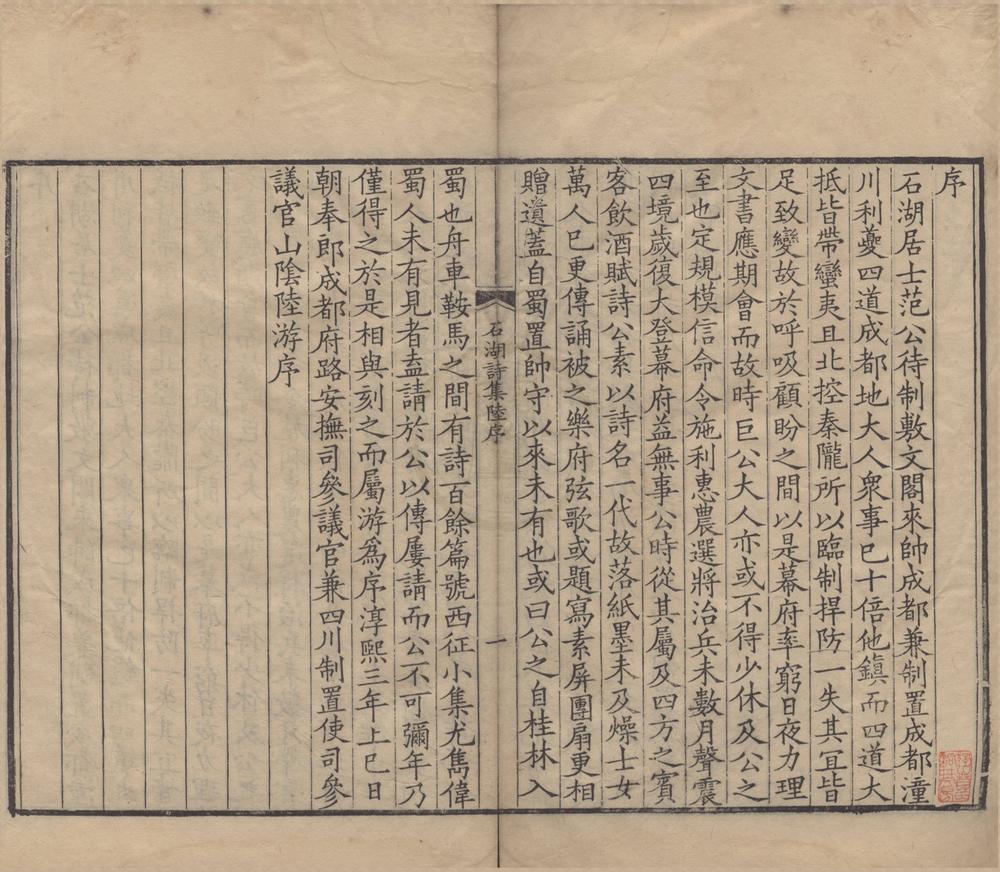 序
石湖居士范公待制敷文閣來帥成都兼制置成都潼
川利夔四道成都地大人衆事已十倍他鎮而四道大
抵皆帶蠻夷且北控秦隴所以臨制捍防一失其宜皆
足致變故於呼吸顧盼之間以是幕府率窮日夜力理
文書應期會而故時巨公大人亦或不得少休及公之
至也定規模信命令施利惠農選將治兵未數月聲震
四境歲復大登幕府益無事公時從其屬及四方之賓
客飲酒賦詩公素以詩名一代故落紙墨未及燥士女
萬人已更傳誦被之樂府弦歌或題寫素屏團扇更相
贈遺蓋自蜀置帥守以來未有也或曰公之自桂林入
石湖詩集陸序
一
蜀也舟車鞍馬之間有詩百餘篇號西征小集尤雋偉
蜀人未有見者盍請於公以傳屢請而公不可彌年乃
僅得之於是相與刻之而屬游爲序淳熙三年上巳日
朝奉郎成都府路安撫司參議官兼四川制置使司參
議官山陰陸游序